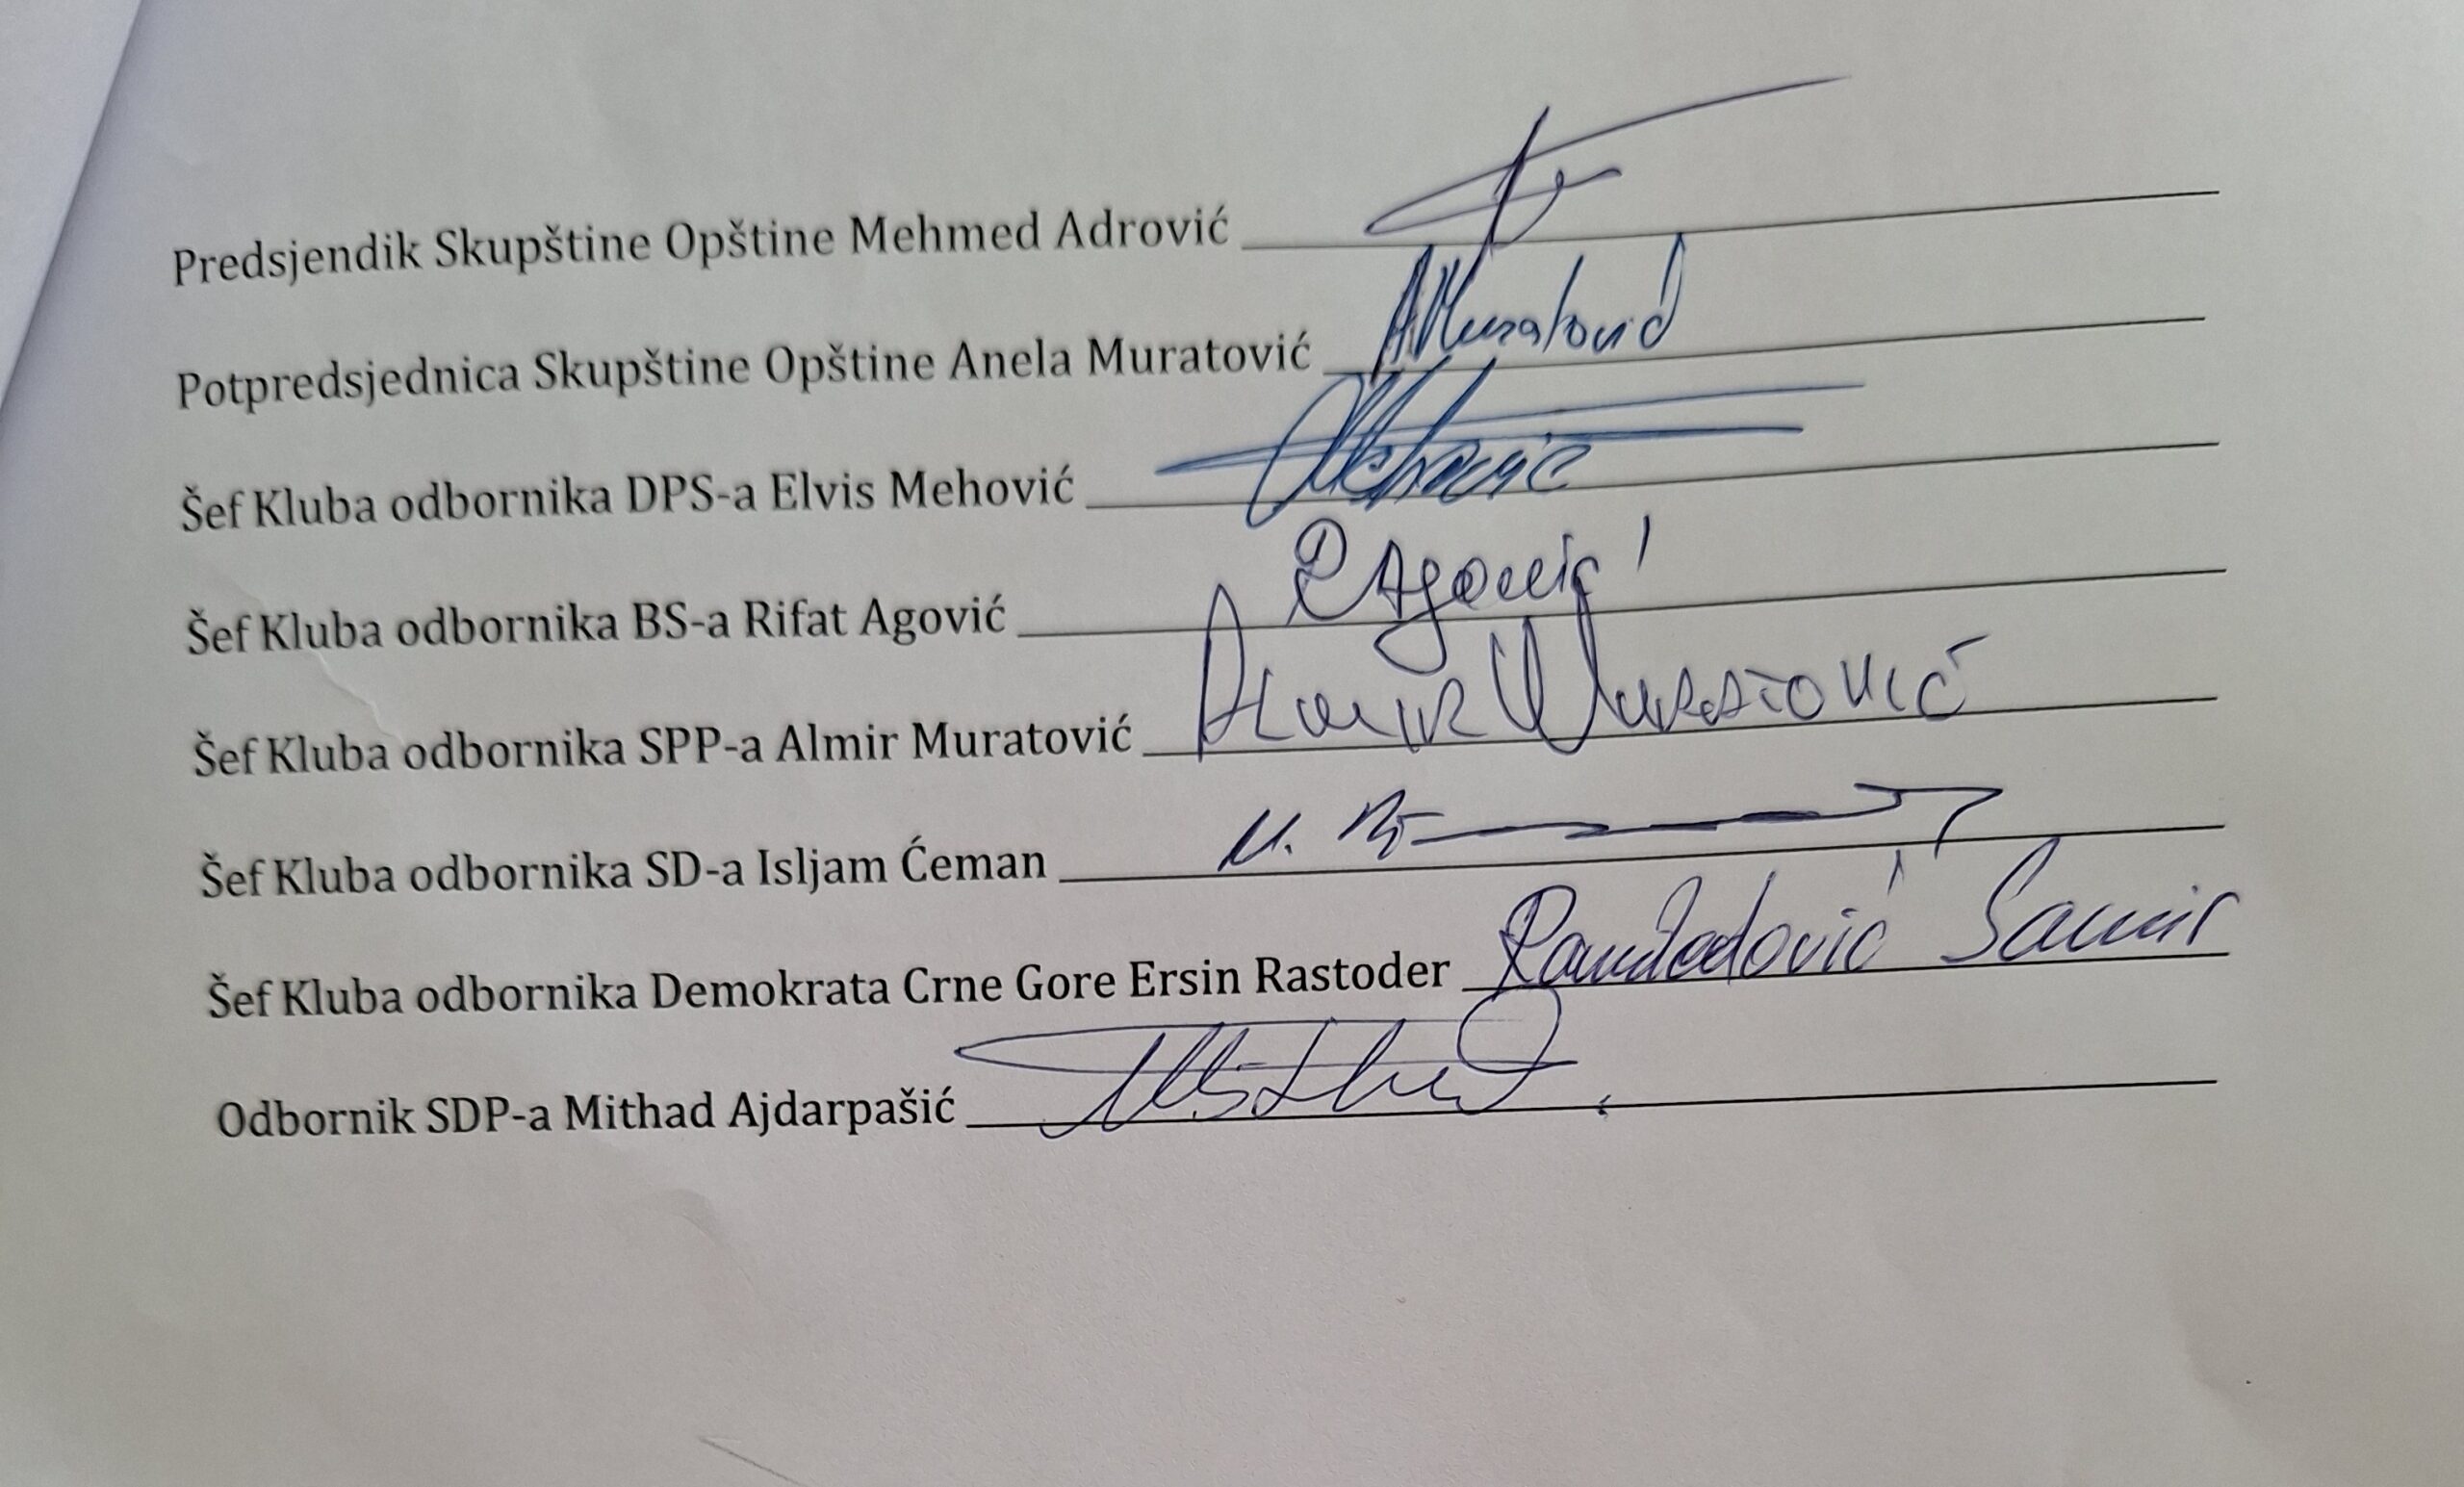 Predsjendik Skupštine Opštine Mehmed Adrović
Potpredsjednica Skupštine Opštine Anela Muratović AMuratović
Šef Kluba odbornika DPS-a Elvis Mehović Mehović
Šef Kluba odbornika BS-a Rifat Agović R Agović
Šef Kluba odbornika SPP-a Almir Muratović Almir Muratović
Šef Kluba odbornika SD-a Isljam Ćeman
Šef Kluba odbornika Demokrata Crne Gore Ersin Rastoder Ramdedović Samir
Odbornik SDP-a Mithad Ajdarpašić Mithad